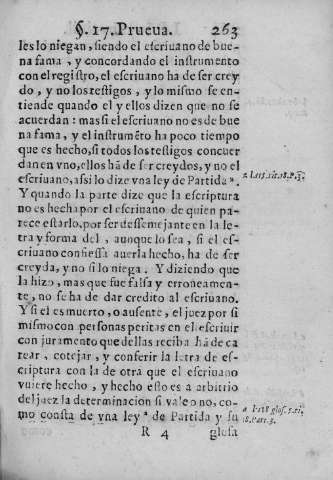 §. 17. Prueua. 263
les lo niegan, siendo el escriuano de bue-
na fama, y concordando el instrumento
con el registro, el escriuano ha de ser crey
do, y no los testigos, y lo mismo se en-
tiende quando el y ellos dizen que no se
acuerdan: mas si el escriuano no es de bue
na fama, y el instrumẽto ha poco tiempo
que es hecho, si todos los testigos concuer
dan en vno, ellos hã de ser creydos, y no el
escriuano, assi lo dize vna ley de Partida ª.
Y quando la parte dize que la escriptura
no es hecha por el escriuano de quien pa-
rece estarlo, por ser dessemejante en la le-
tra y forma del, aunque lo sea, si el es-
criuano confiessa auerla hecho, ha de ser
creyda, y no si lo niega. Y diziendo que
la hizo, mas que fue falsa y erroneamen-
te, no se ha de dar credito al escriuano.
Y si el es muerto, o ausente, el juez por si
mismo con personas peritas en el escriuir
con juramento que dellas reciba hã de ca
rear, cotejar, y conferir la letra de es-
criptura con la de otra que el escriuano
vuiere hecho, y hecho esto es a arbitrio
del juez la determinacion si vale o no, co-
mo consta de vna ley ª de Partida y su
R 4 glosa